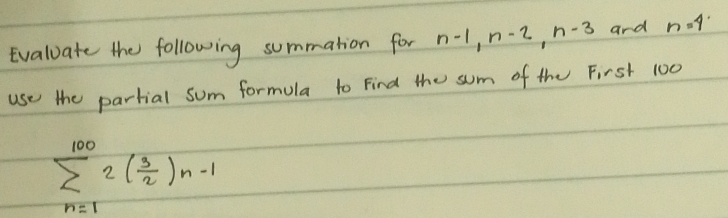 Evaluate the following summation for n-1, n-2, n-3 and n=4.
use the partial sum formula to Find the sum of the First 100
100
∑ 2 (3/2) n-1
n=1